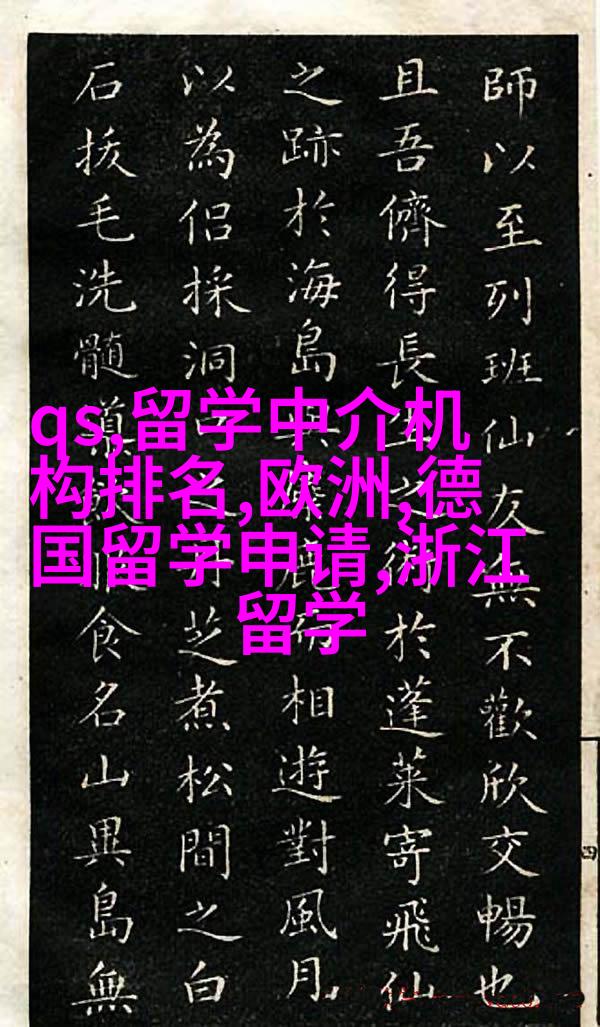 師以至列班仙友無不歡欣交暢也
且吾儕得長生之術於蓬萊寄飛仙
之跡於海島與鹿而相遊對風月
以為侶採洞之芝煮松間之白
石拔毛洗髓導服食名山異島無
qs,留学中介机
构排名,欧洲,德
国留学申请,浙江
留学
四